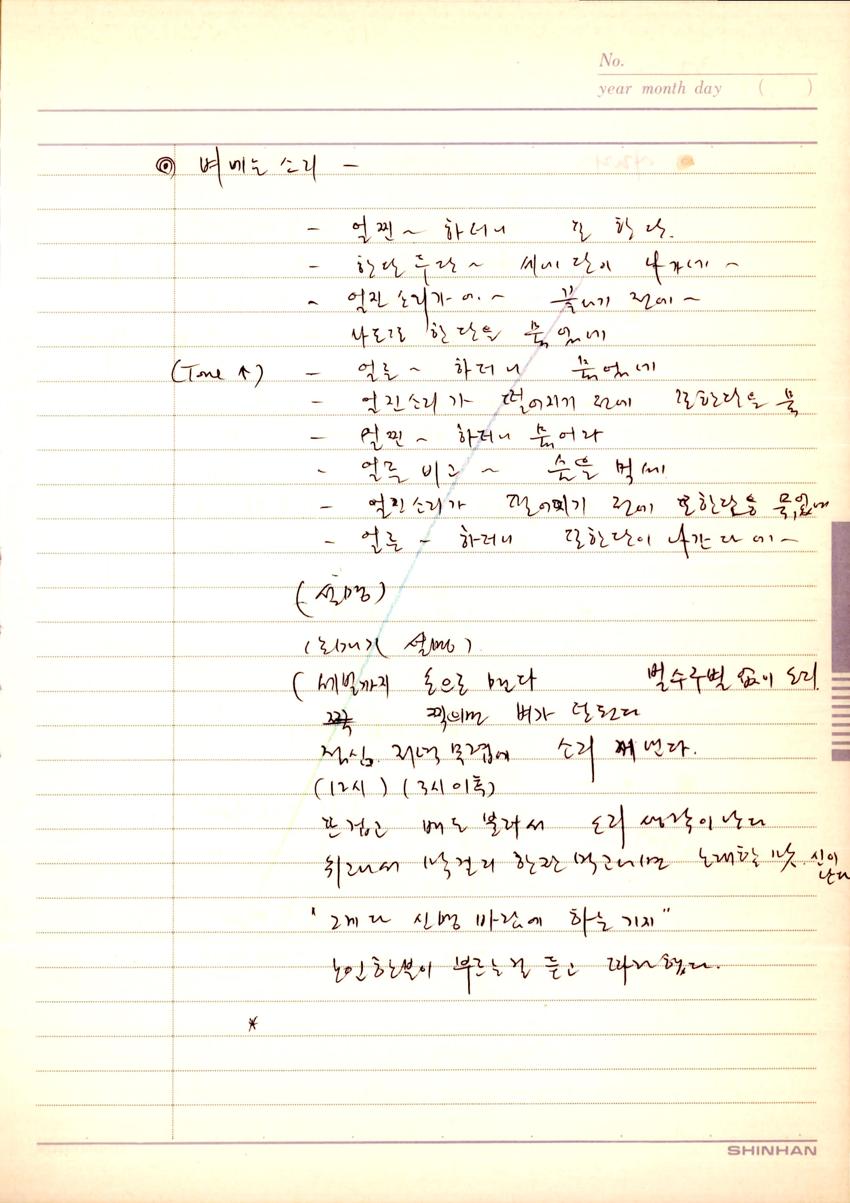 No.
year month day ( )
◎ 벼 베는 소리 -
- 얼찐~ 하더니 또 한 단.
- 한단 두단~ 세네 단이 나가네~
- 얼찐 소리가 에~ 끝나기 전에~
나도 또 한단을 묶었네
(Tone ↑) - 얼른~ 하더니 묶었네
- 얼찐소리가 떨어지기 전에 또한단을 묶
- 얼찐~ 하더니 묶어라
- 얼른 비고~ 술을 먹세
- 얼찐소리가 떨어지기 전에 또한단을 묶었네
- 얼른~ 하더니 또한단이 나간다 에~
(설명)
( 설명)
(세벌까지 손으로 맨다 없이 소리
찍으면 벼가 덜된다
점심. 저녁 무렵에 소리 낸다.
(12시) (3시 이후)
즐겁고 배도 불러서 소리 생각이 난다
쉬면서 막걸리 한잔 먹고나면 노래할 맛. 신이
난다
"그게 다 신명 바람에 하는 기지"
노인 한분이 부르는걸 듣고 따라했다.
*
SHINHAN